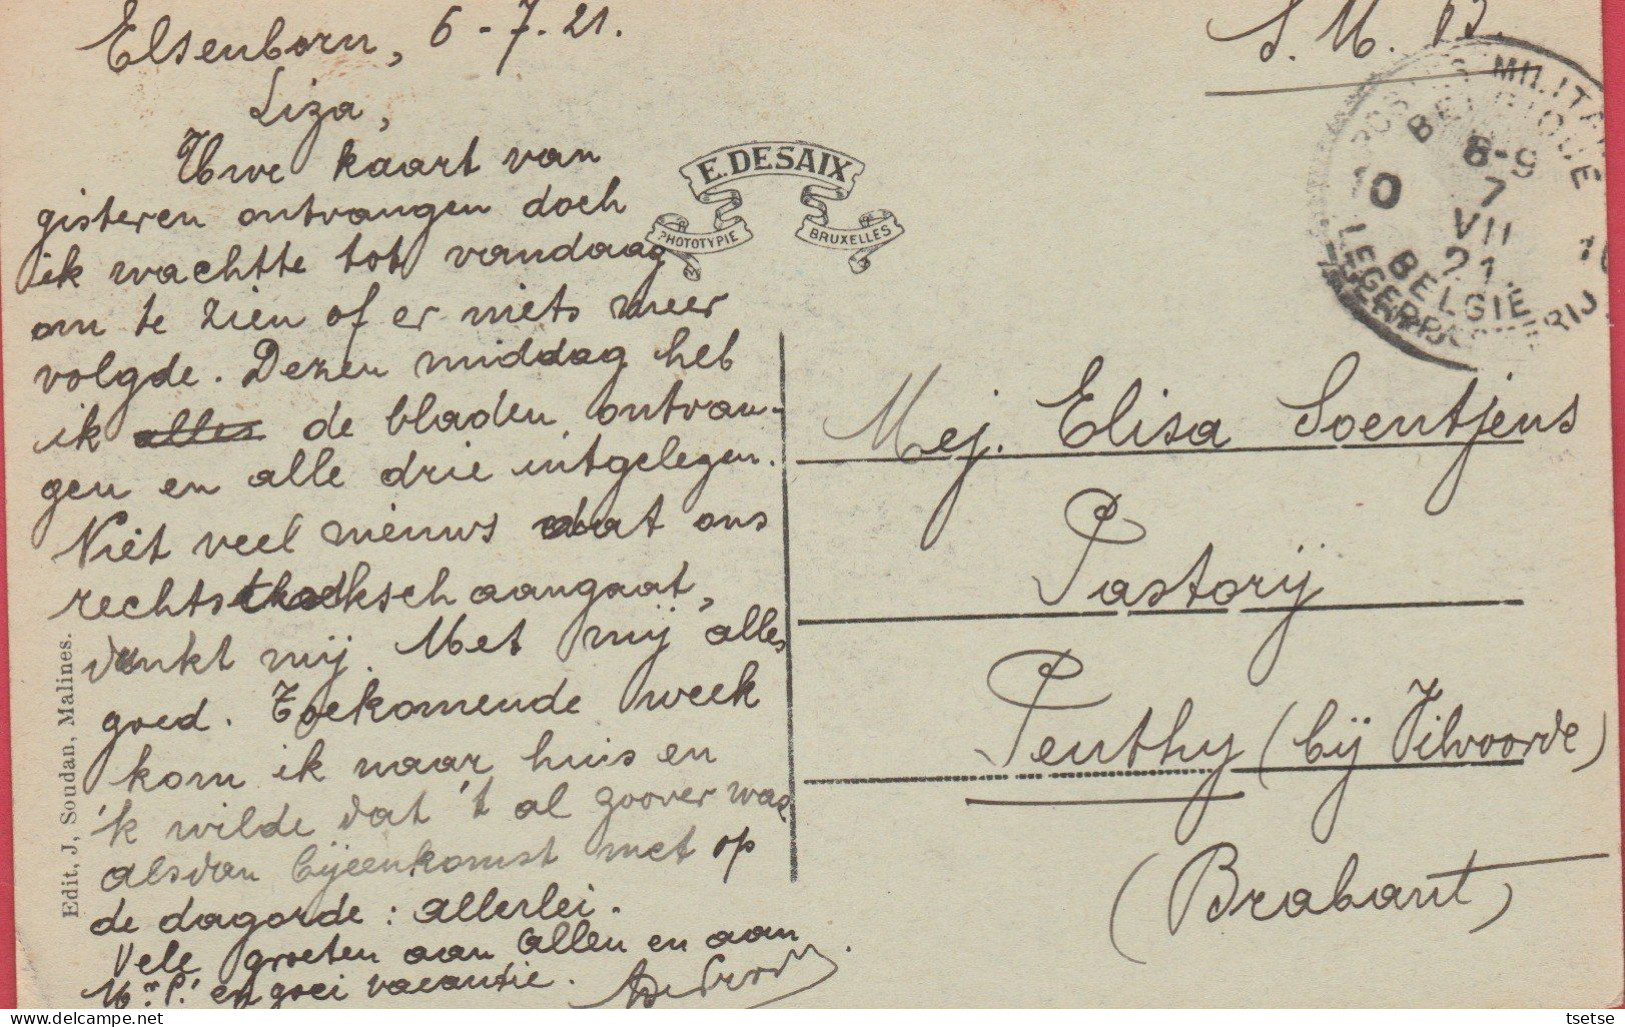 Elsenborn, 6-7.21.
Liza,
Uwe kaart van
gisteren ontvangen doch
ik wachtte tot vandaag
om te zien of er niets meer
volgde. Dezen middag heb
ik alles de bladen ontvan-
gen en alle drie uitgelegen.
Niet veel nieuws dat ons
rechts aangaat,
dunkt mij. Met mij alles
goed. Toekomende week
kom ik naar huis en
'k wilde dat 't al zoover was
alsdan bijeenkomst met op
de dagorde: allerlei.
Vele groeten aan allen en aan
Mr. P.! en goei vacantie.
Edit, J, Soudan, Malines.
E. DESAIX
PHOTOTYPIE BRUXELLES
S. M. B.
MILITA
BELGIQUE
8-9
7
VII
21
10
BELGIË
LEGERPOSTERIJ
Mej. Elisa Soentjens
Pastorij
Peuthy (bij Vilvoorde)
(Brabant)
tsetse